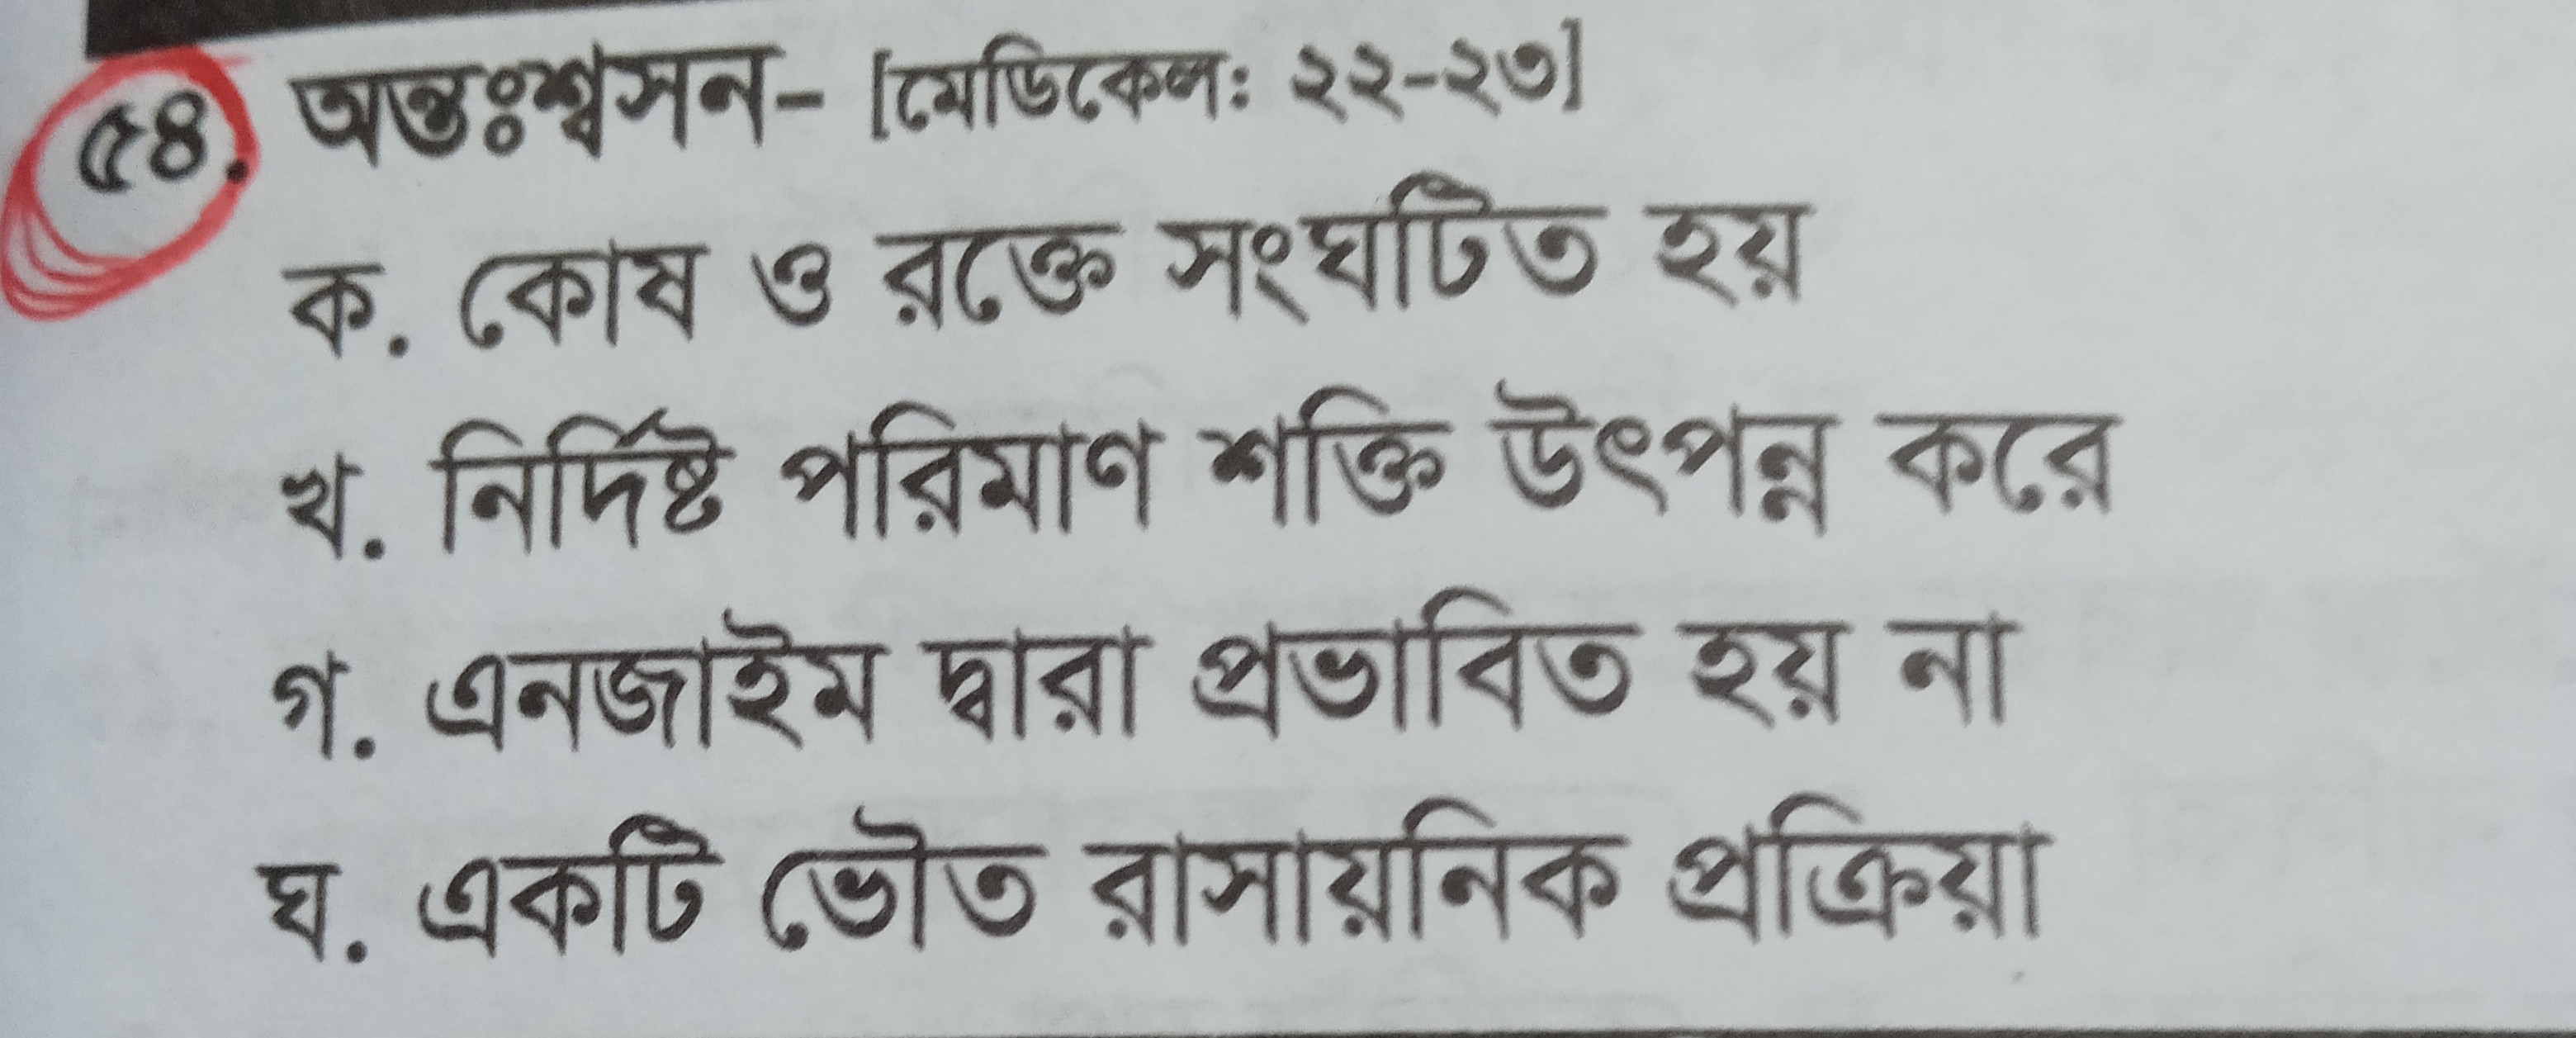 ৫৪. অন্তঃশ্বসন- [মেডিকেল: ২২-২৩]
ক. কোষ ও রক্তে সংঘটিত হয়
খ. নির্দিষ্ট পরিমাণ শক্তি উৎপন্ন করে
গ. এনজাইম দ্বারা প্রভাবিত হয় না
ঘ. একটি ভৌত রাসায়নিক প্রক্রিয়া